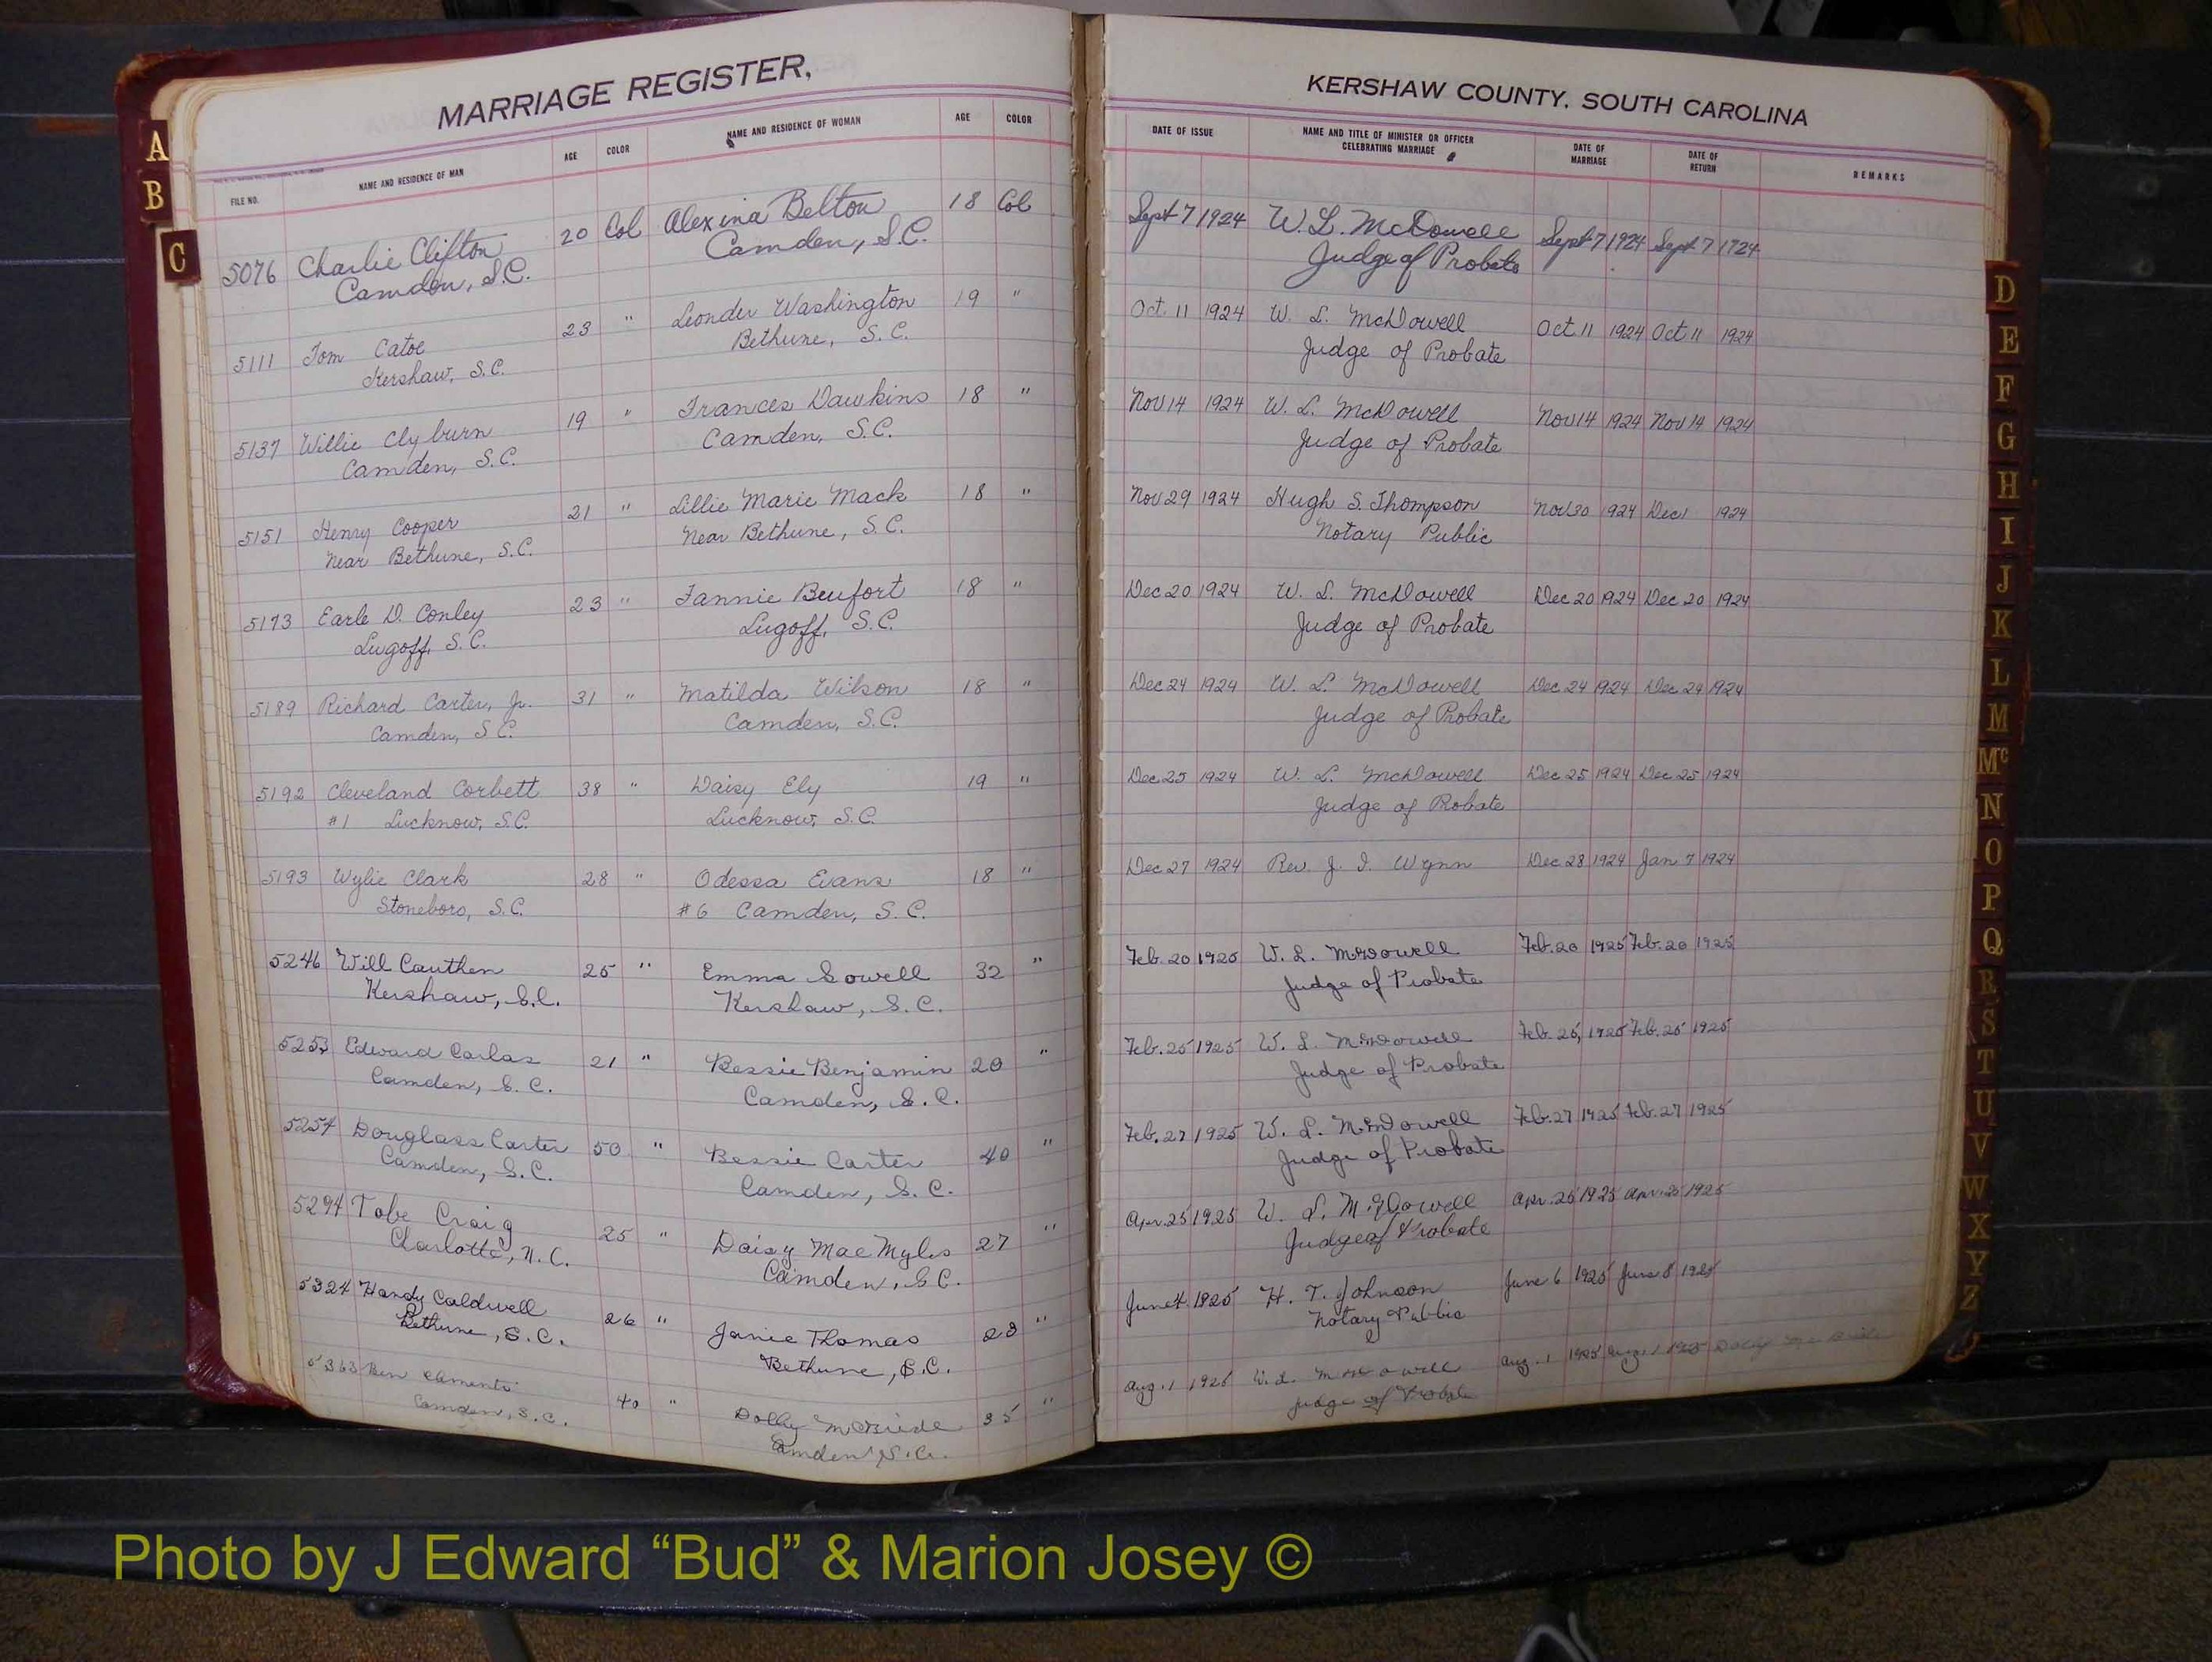 MARRIAGE REGISTER,
FILE NO. NAME AND RESIDENCE OF MAN AGE COLOR NAME AND RESIDENCE OF WOMAN AGE COLOR
5076 Charlie Clifton 20 Col Alexina Belton 18 Col
Camden, S.C. Camden, S.C.
5111 Tom Catoe 23 " Leonder Washington 19 "
Kershaw, S.C. Bethune, S.C.
5137 Willie Clyburn 19 " Frances Dawkins 18 "
Camden, S.C. Camden, S.C.
5151 Henry Cooper 21 " Lillie Marie Mack 18 "
Near Bethune, S.C. Near Bethune, S.C.
5173 Earle D. Conley 23 " Fannie Beufort 18 "
Lugoff, S.C. Lugoff, S.C.
5189 Richard Carter, Jr. 31 " Matilda Wilson 18 "
Camden, S.C. Camden, S.C.
5192 Cleveland Corbett 38 " Daisy Ely 19 "
#1 Lucknow, S.C. Lucknow, S.C.
5193 Wylie Clark 28 " Odessa Evans 18 "
Stoneboro, S.C. #6 Camden, S.C.
5246 Will Cauthen 25 " Emma Sowell 32 "
Kershaw, S.C. Kershaw, S.C.
5253 Edward Carlas 21 " Bessie Benjamin 20 "
Camden, S.C. Camden, S.C.
5254 Douglass Carter 50 " Bessie Carter 40 "
Camden, S.C. Camden, S.C.
5294 Tobe Craig 25 " Daisy Mae Myles 27 "
Charlotte, N.C. Camden, S.C.
5324 Handy Caldwell 26 " Janie Thomas 28 "
Bethune, S.C. Bethune, S.C.
5363 Ben Clements 40 " Dolly McBride 35 "
Camden, S.C. Camden S.C.
KERSHAW COUNTY, SOUTH CAROLINA
DATE OF ISSUE NAME AND TITLE OF MINISTER OR OFFICER CELEBRATING MARRIAGE DATE OF MARRIAGE DATE OF RETURN REMARKS
Sept 7 1924 W. L. McDowell Sept 7 1924 Sept 7 1924
Judge of Probate
Oct. 11 1924 W. L. McDowell Oct 11 1924 Oct 11 1924
Judge of Probate
Nov 14 1924 W. L. McDowell Nov 14 1924 Nov 14 1924
Judge of Probate
Nov 29 1924 Hugh S. Thompson Nov 30 1924 Dec 1 1924
Notary Public
Dec 20 1924 W. L. McDowell Dec 20 1924 Dec 20 1924
Judge of Probate
Dec 24 1924 W. L. McDowell Dec 24 1924 Dec 24 1924
Judge of Probate
Dec 25 1924 W. L. McDowell Dec 25 1924 Dec 25 1924
Judge of Probate
Dec 27 1924 Rev. J. I. Wynn Dec 28 1924 Jan 7 1924
Feb. 20 1925 W. L. McDowell Feb. 20 1925 Feb. 20 1925
Judge of Probate
Feb. 25 1925 W. L. McDowell Feb. 25, 1925 Feb. 25 1925
Judge of Probate
Feb. 27 1925 W. L. McDowell Feb. 27 1925 Feb. 27 1925
Judge of Probate
Apr. 25 1925 W. L. McDowell Apr. 25 1925 Apr. 25 1925
Judge of Probate
June 4 1925 H. T. Johnson June 6 1925 June 8 1925
Notary Public
Aug. 1 1925 W. L. McDowell Aug. 1 1925 Aug. 1 1925 Dolly McBride
Judge of Probate
A
B
C
D
E
F
G
H
I
J
K
L
M
Mc
N
O
P
Q
R
S
T
U
V
W
X
Y
Z
Photo by J Edward “Bud” & Marion Josey ©